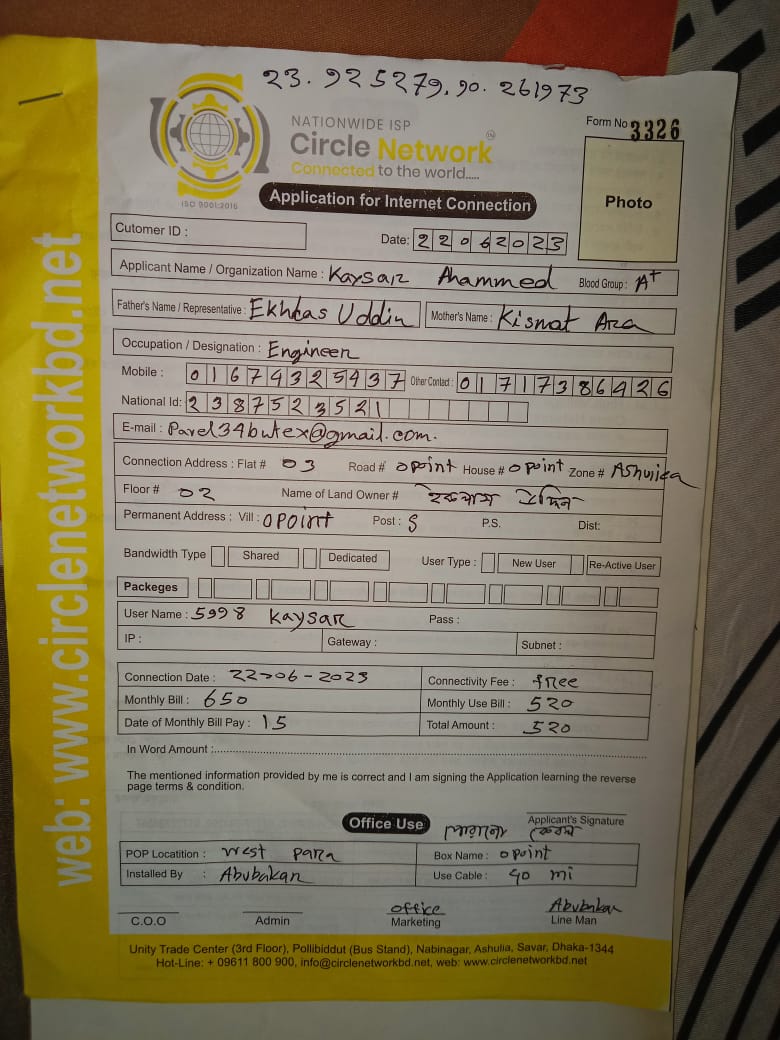 23.925279, 90.261973
NATIONWIDE ISP
Form No 3326
Circle Network
Connected to the world.....
ISO 9001:2016
Application for Internet Connection
Photo
Cutomer ID :
Date: 22062023
Applicant Name / Organization Name : Kaysar Ahammed Blood Group : A+
Father's Name / Representative : Ekhlas Uddin Mother's Name : Kismat Ara
Occupation / Designation : Engineer
Mobile : 01674325437 Other Contact : 01717386426
National Id: 2387523521
E-mail : Pavel34butex@gmail.com.
Connection Address : Flat # 03 Road # 0point House # 0point Zone # Ashulia
Floor # 02 Name of Land Owner # উদ্দিন
Permanent Address : Vill : 0point Post : S P.S. Dist:
Bandwidth Type Shared Dedicated User Type : New User Re-Active User
Packeges
User Name : 5998 Kaysar Pass :
IP : Gateway : Subnet :
Connection Date : 22-06-2023 Connectivity Fee : free
Monthly Bill : 650 Monthly Use Bill : 520
Date of Monthly Bill Pay : 15 Total Amount : 520
In Word Amount :
The mentioned information provided by me is correct and I am signing the Application learning the reverse
page terms & condition.
Applicant's Signature
Office Use
POP Locatition : West Para Box Name : 0point
Installed By : Abubakar Use Cable : 40 mi
office Abubakar
C.O.O Admin Marketing Line Man
Unity Trade Center (3rd Floor), Pollibiddut (Bus Stand), Nabinagar, Ashulia, Savar, Dhaka-1344
Hot-Line: + 09611 800 900, info@circlenetworkbd.net, web: www.circlenetworkbd.net
web: www.circlenetworkbd.net